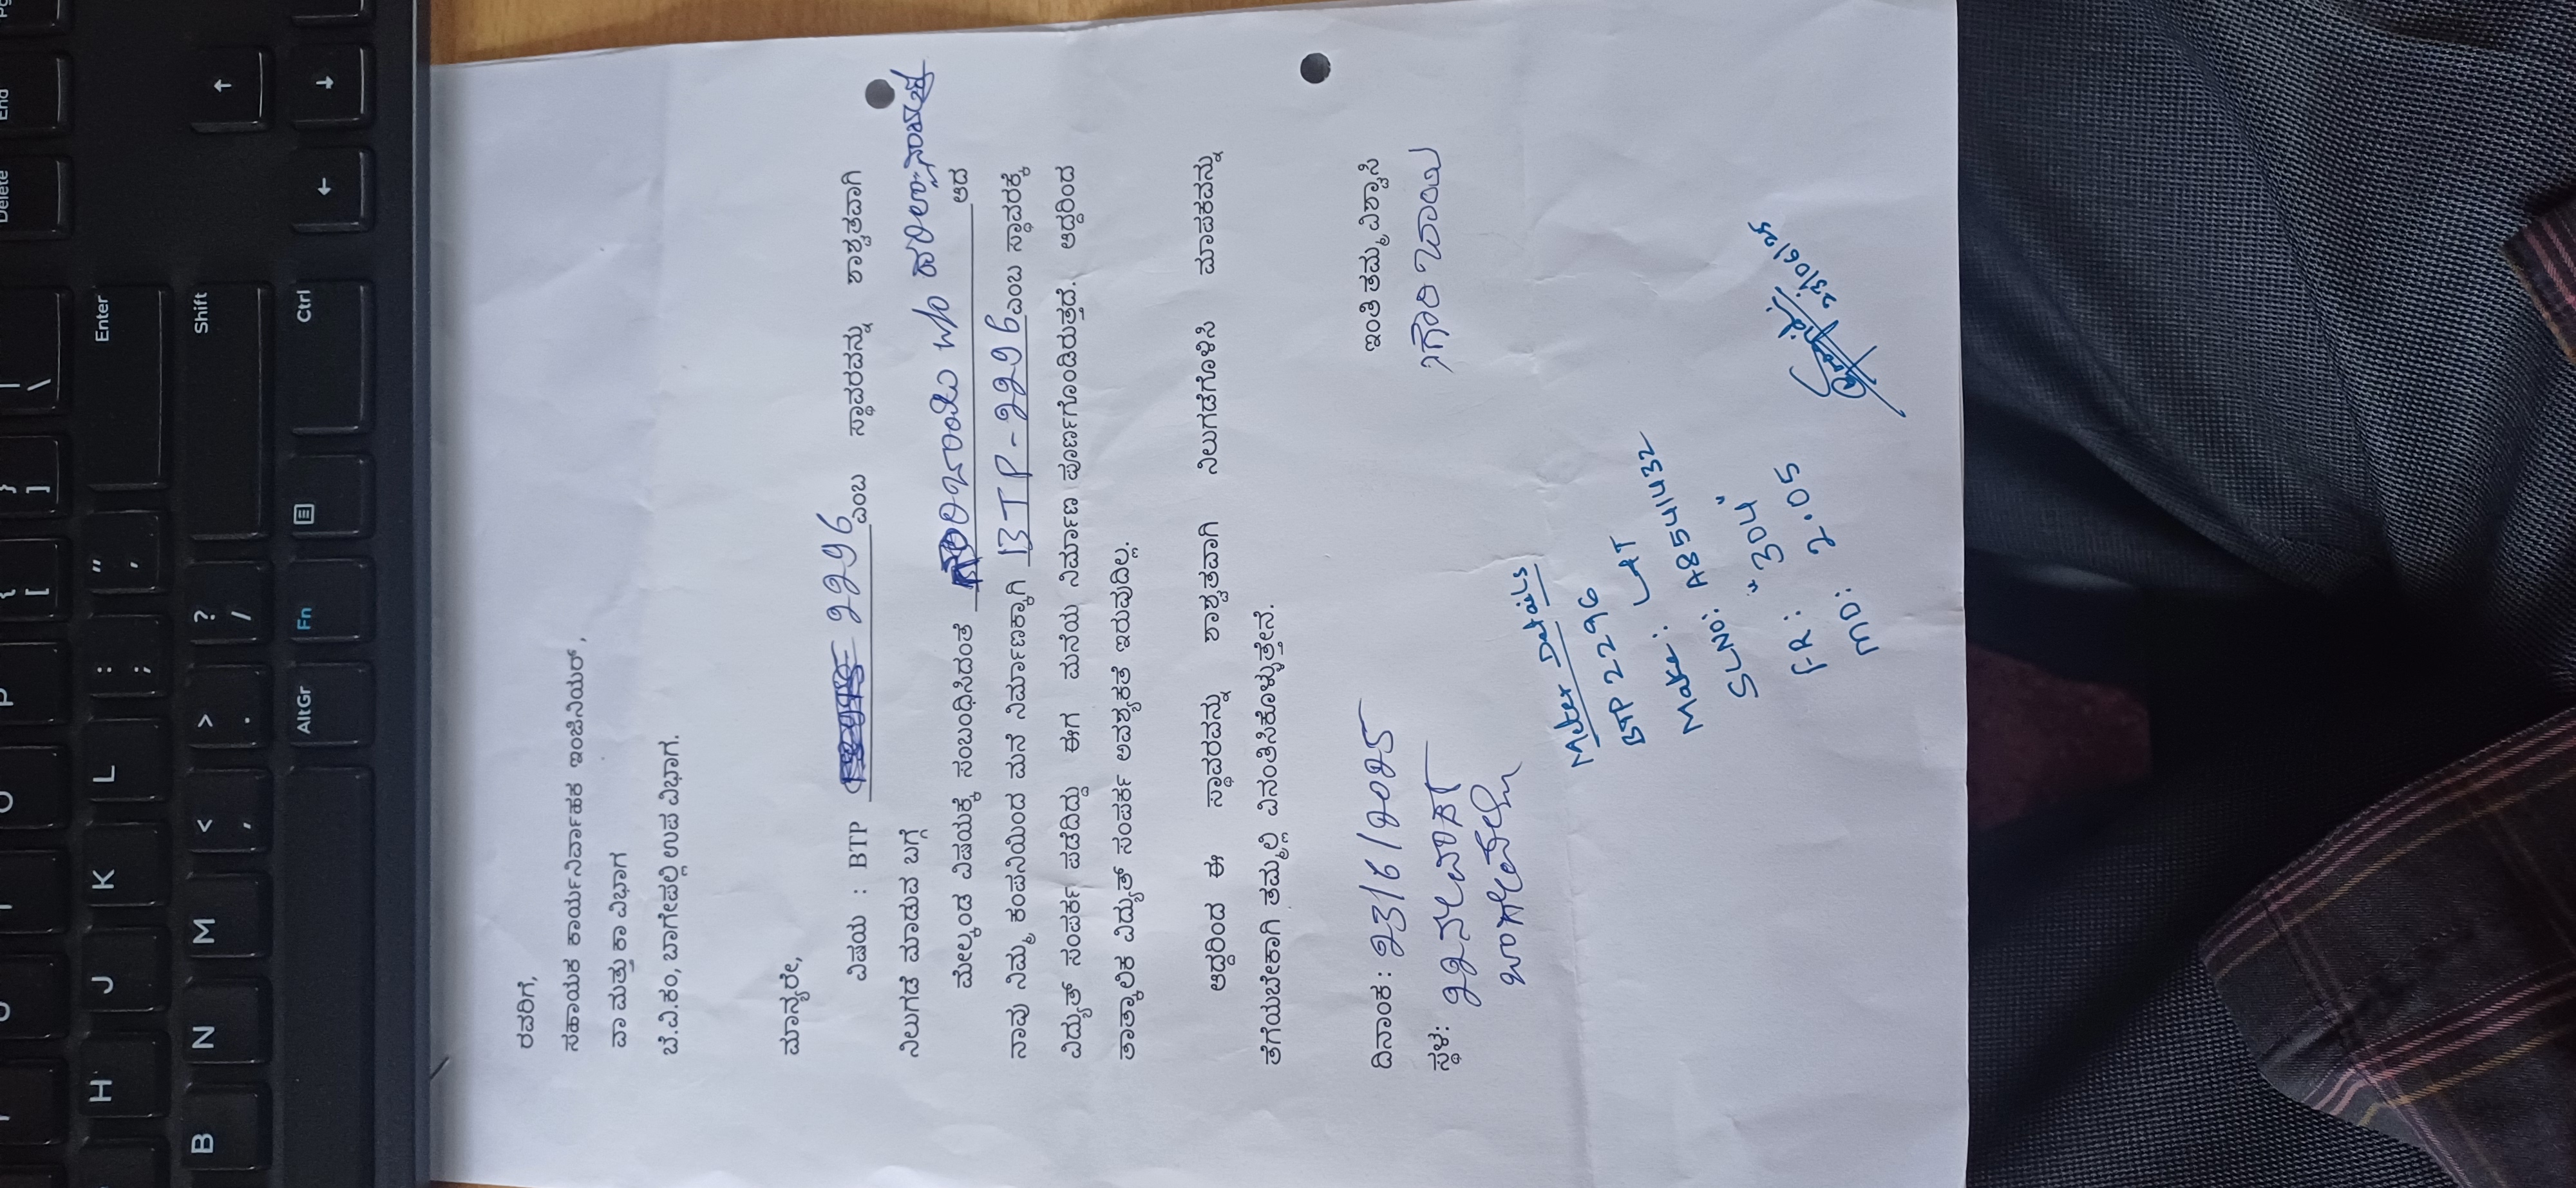 ರವರಿಗೆ,
ಸಹಾಯಕ ಕಾರ್ಯನಿರ್ವಾಹಕ ಇಂಜಿನಿಯರ್,
ಪಾ ಮತ್ತು ಕಾ ವಿಭಾಗ
ಬೆ.ವಿ.ಕಂ, ಬಾಗೇಪಲ್ಲಿ ಉಪ ವಿಭಾಗ.
ಮಾನ್ಯರೇ,
ವಿಷಯ : BTP 2296 ಎಂಬ ಸ್ಥಾವರವನ್ನು ಶಾಶ್ವತವಾಗಿ
ನಿಲುಗಡೆ ಮಾಡುವ ಬಗ್ಗೆ
ಮೇಲ್ಕಂಡ ವಿಷಯಕ್ಕೆ ಸಂಬಂಧಿಸಿದಂತೆ W/o ಆದ
ನಾವು ನಿಮ್ಮ ಕಂಪನಿಯಿಂದ ಮನೆ ನಿರ್ಮಾಣಕ್ಕಾಗಿ BTP - 2296 ಎಂಬ ಸ್ಥಾವರಕ್ಕೆ
ವಿದ್ಯುತ್ ಸಂಪರ್ಕ ಪಡೆದಿದ್ದು ಈಗ ಮನೆಯ ನಿರ್ಮಾಣ ಪೂರ್ಣಗೊಂಡಿರುತ್ತದೆ. ಆದ್ದರಿಂದ
ತಾತ್ಕಾಲಿಕ ವಿದ್ಯುತ್ ಸಂಪರ್ಕ ಅವಶ್ಯಕತೆ ಇರುವುದಿಲ್ಲ.
ಆದ್ದರಿಂದ ಈ ಸ್ಥಾವರವನ್ನು ಶಾಶ್ವತವಾಗಿ ನಿಲುಗಡೆಗೊಳಿಸಿ ಮಾಪಕವನ್ನು
ತೆಗೆಯಬೇಕಾಗಿ ತಮ್ಮಲ್ಲಿ ವಿನಂತಿಸಿಕೊಳ್ಳುತ್ತೇನೆ.
ಇಂತಿ ತಮ್ಮ ವಿಶ್ವಾಸಿ
ದಿನಾಂಕ : 23/6/2025
ಸ್ಥಳ: 22ನೇ ವಾರ್ಡ್
ಬಾಗೇಪಲ್ಲಿ
Meter Details
BTP 2296
Make: L&T
SLNO: A8541432
FR: "304"
MD: 2.05
23/06/25